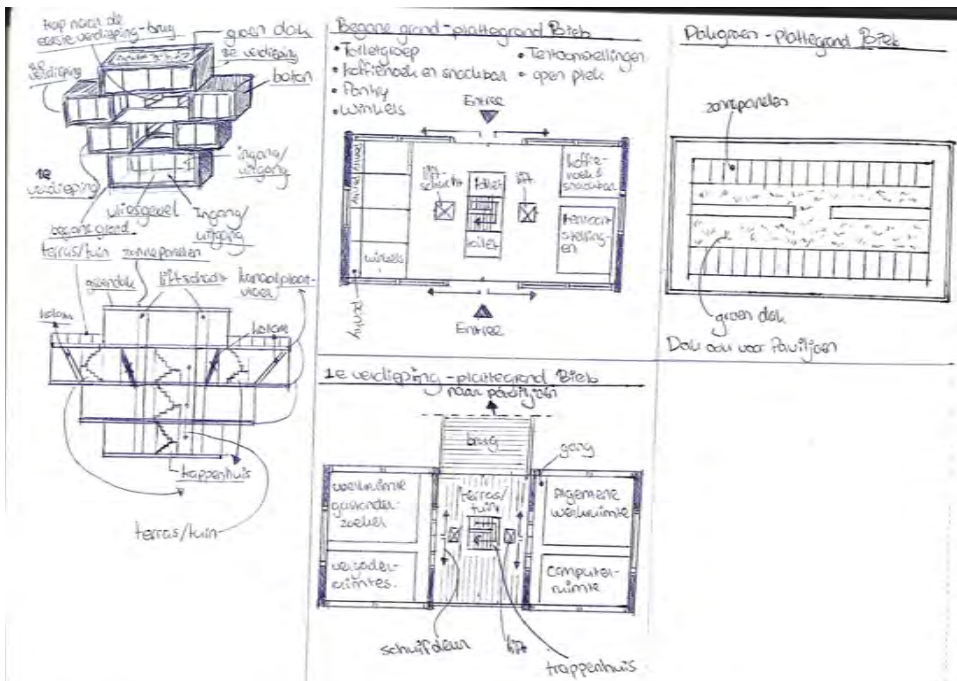 trap naar de
eerste verdieping-brug
groen dak
2e verdieping
2e
verdieping
beton
ingang/
uitgang
1e
verdieping
vliesgevel
Ingang/
uitgang
begane grond
terras/tuin
zonnepanelen
groendak
liftschacht
kanaalplaat-
vloer
kolom
kolom
trappenhuis
terras/tuin
Begane grond-plattegrond Bieb
• Toiletgroep
• koffiehoek en snackbar
• Pantry
• winkels
• Tentoonstellingen
• open plek
Entree
lift-
schacht
toilet
lift
koffie-
hoek &
snackbar
toilet
tentoon-
stelling-
en
winkels
pantry
Entree
1e verdieping-plattegrond Bieb
naar paviljoen
brug
gang
werkruimte
gastonder-
zoeker
terras/
tuin
algemene
werkruimte
vergader-
ruimtes.
computer-
ruimte
schuifdeur
lift
trappenhuis
Dakgroen-plattegrond Bieb
zonnepanelen
groen dak
Dak ook voor Paviljoen